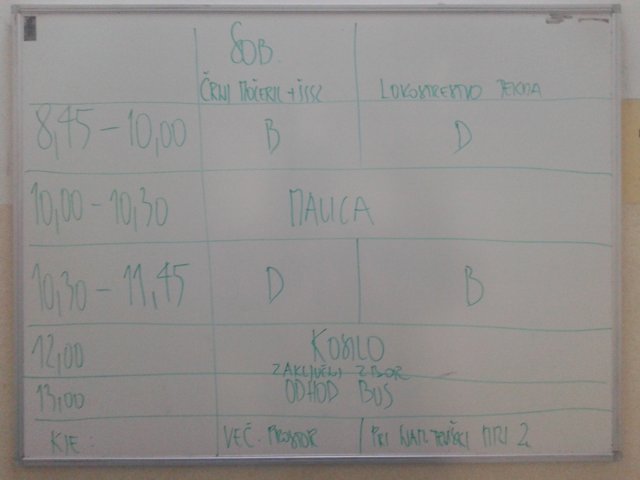 SOB.
ČRNI MOČERIL + ŠSSZ LOKOSTRELSTVO TEKMA
8,45 – 10,00 B D
10,00 – 10,30 MALICA
10,30 – 11,45 D B
12,00 KOSILO
ZAKLJUČNI ZBOR
13,00 ODHOD BUS
KJE VEČ. PROSTOR PRI 2